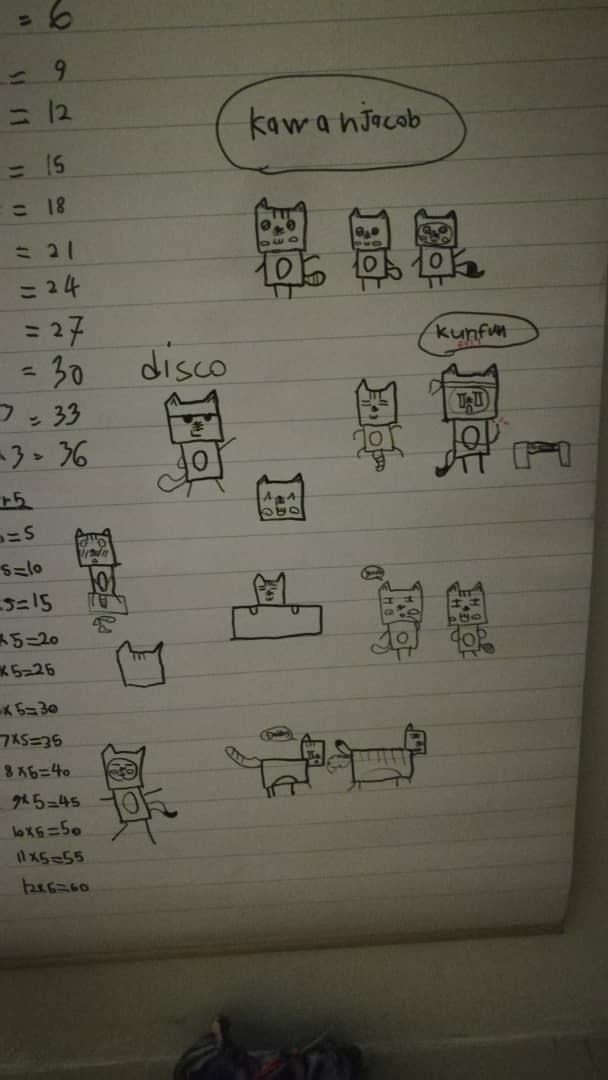 = 6
= 9
= 12
= 15
= 18
= 21
= 24
= 27
= 30
= 33
3 = 36
kawanjacob
kunfun
disco
= 5
5 = 10
5 = 15
x 5 = 20
x 5 = 25
x 5 = 30
7 x 5 = 35
8 x 5 = 40
9 x 5 = 45
10 x 5 = 50
11 x 5 = 55
12 x 5 = 60